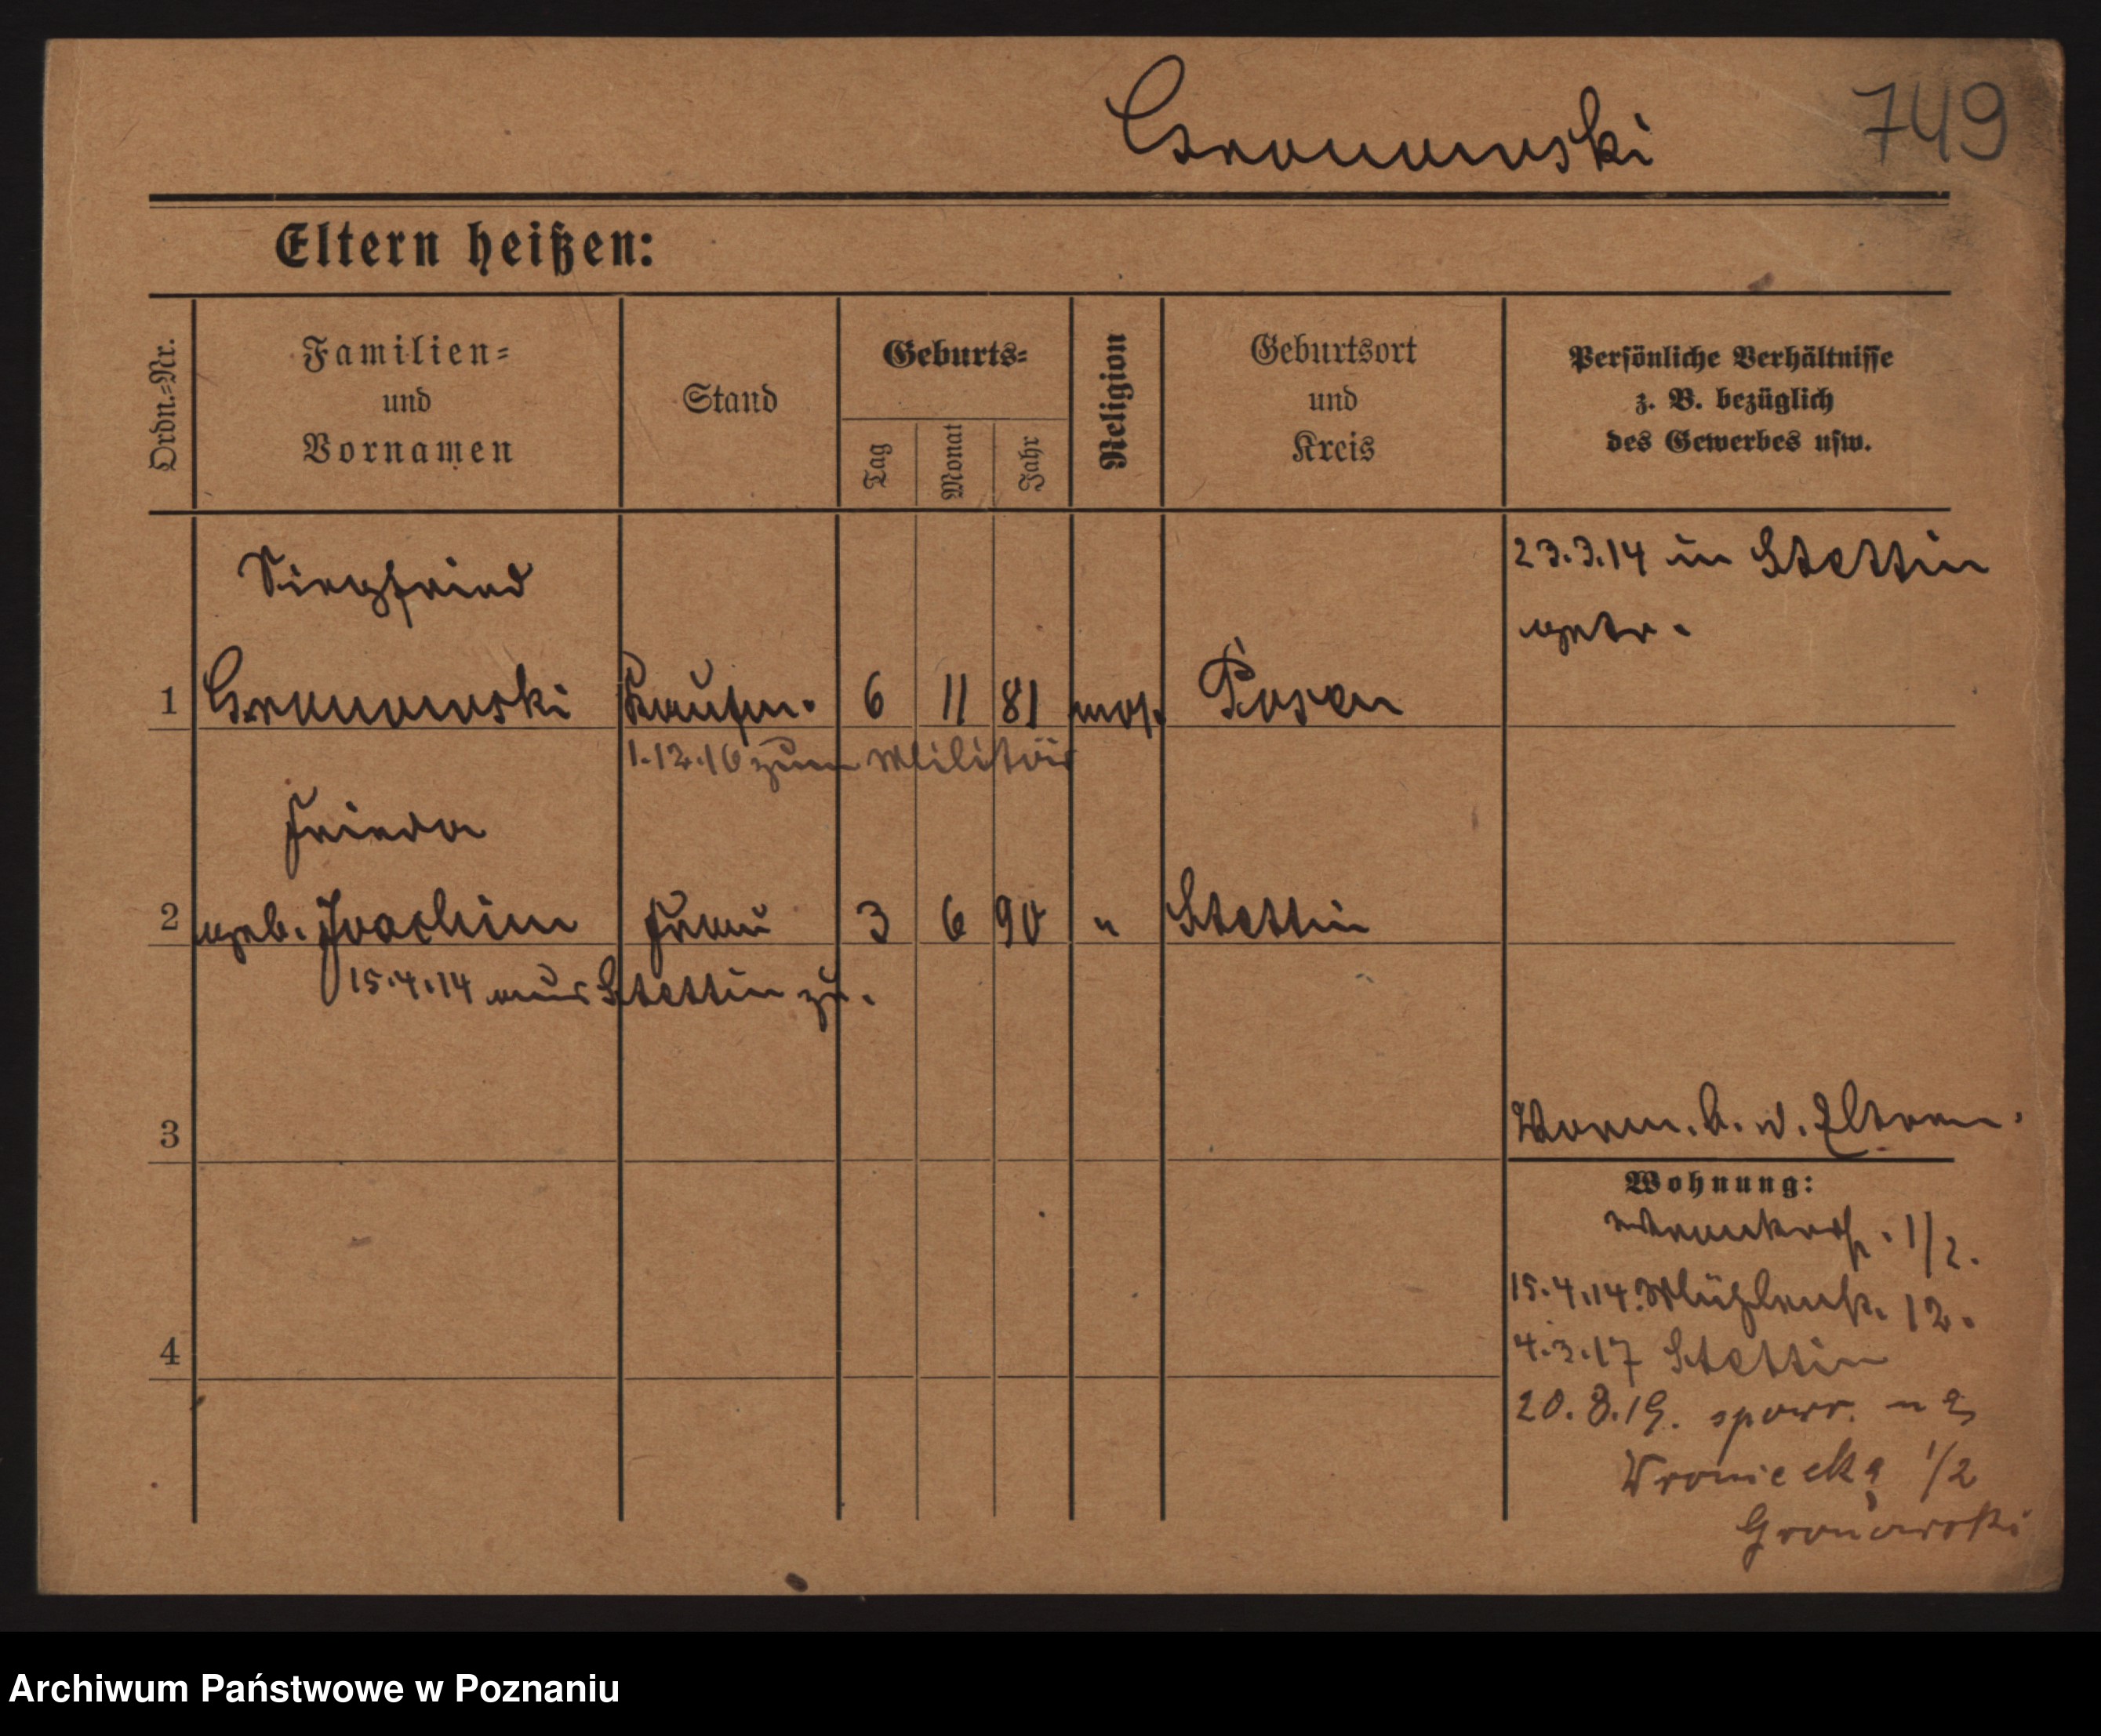 Gronowski 749
Eltern heißen:
Ordn.=Nr.
Familien=
und
Vornamen
Stand
Geburts=
Tag
Monat
Jahr
Religion
Geburtsort
und
Kreis
Persönliche Verhältnisse
z. B. bezüglich
des Gewerbes usw.
Siegfried
23.3.14 in Stettin
getr.
1 Gronowski Kaufm. 6 11 81 mos. Posen
1.12.16 zum Militär
Frieda
2 geb. Joachim Frau 3 6 90 " Stettin
15.4.14 aus Stettin zu.
3
Vorm. b. d. Eltern.
Wohnung:
1/2.
15.4.14. Mühlenstr. 12.
4
4.3.17 Stettin
20. 8. 19. spowr. n a
Wroniecka 1/2
Gronowski
Archiwum Państwowe w Poznaniu